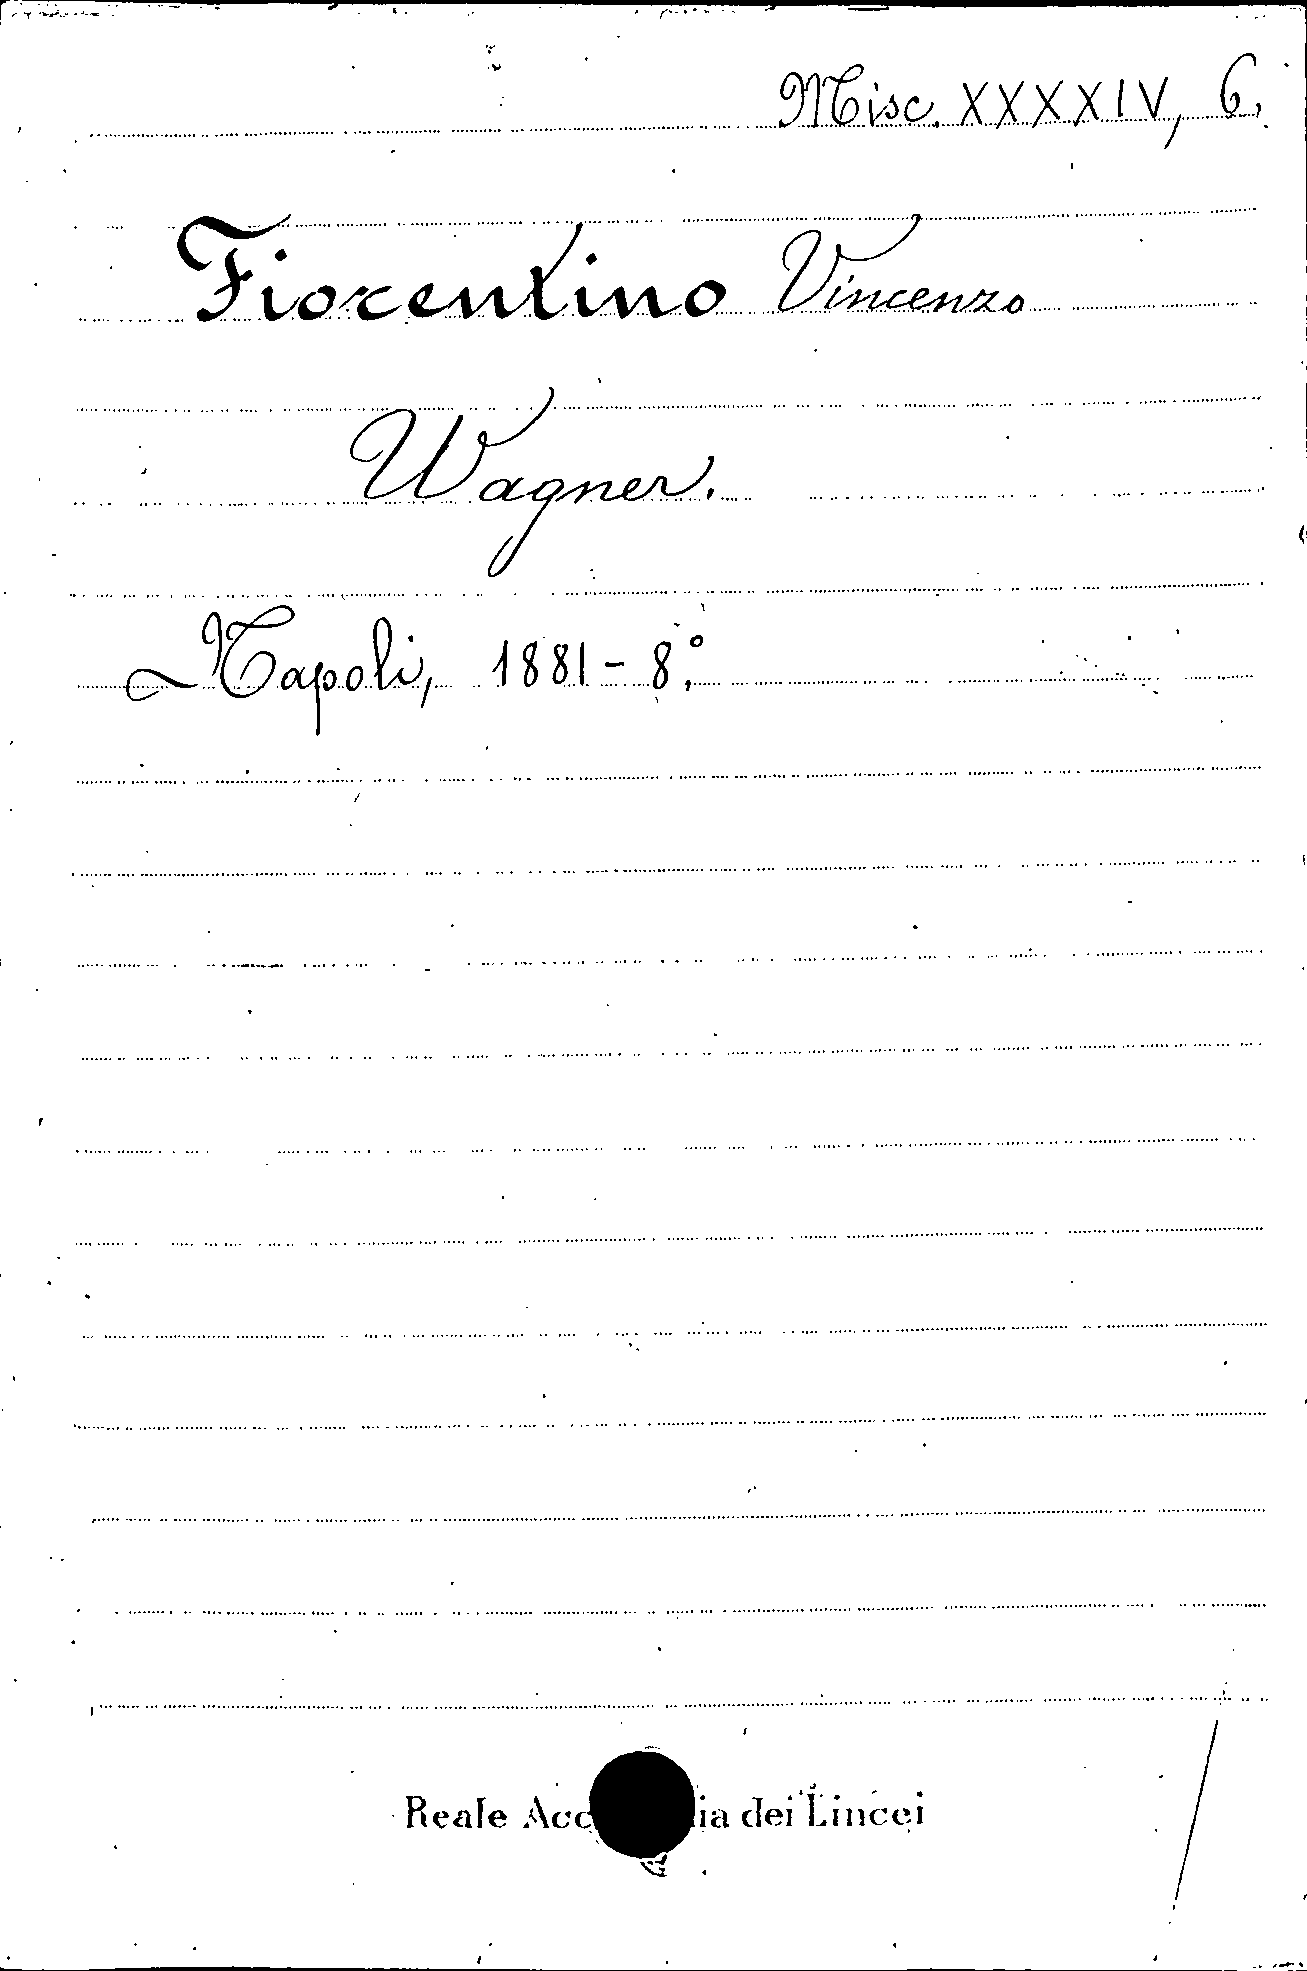 Misc. XXXXIV, 6.
Fiorentino Vincenzo
Wagner.
Napoli, 1881-8º.
Reale Acc ia dei Lincei